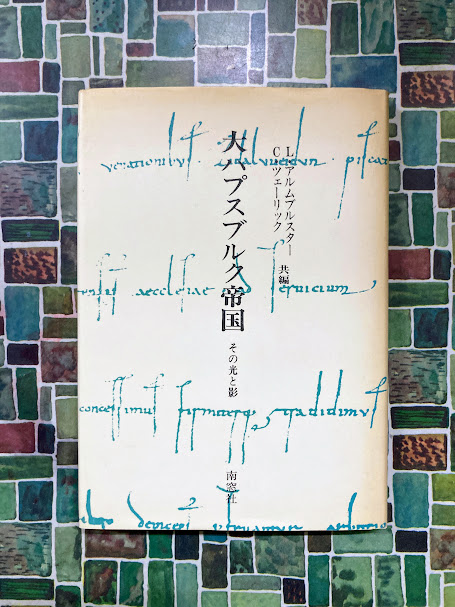 大ハプスブルク帝国
その光と影
L・アルムブルスター
C・ツェーリック
共編
南窓社
uerationibus
piscar
aecclesiae
seruicium
concessimus firmamus & tradidimus